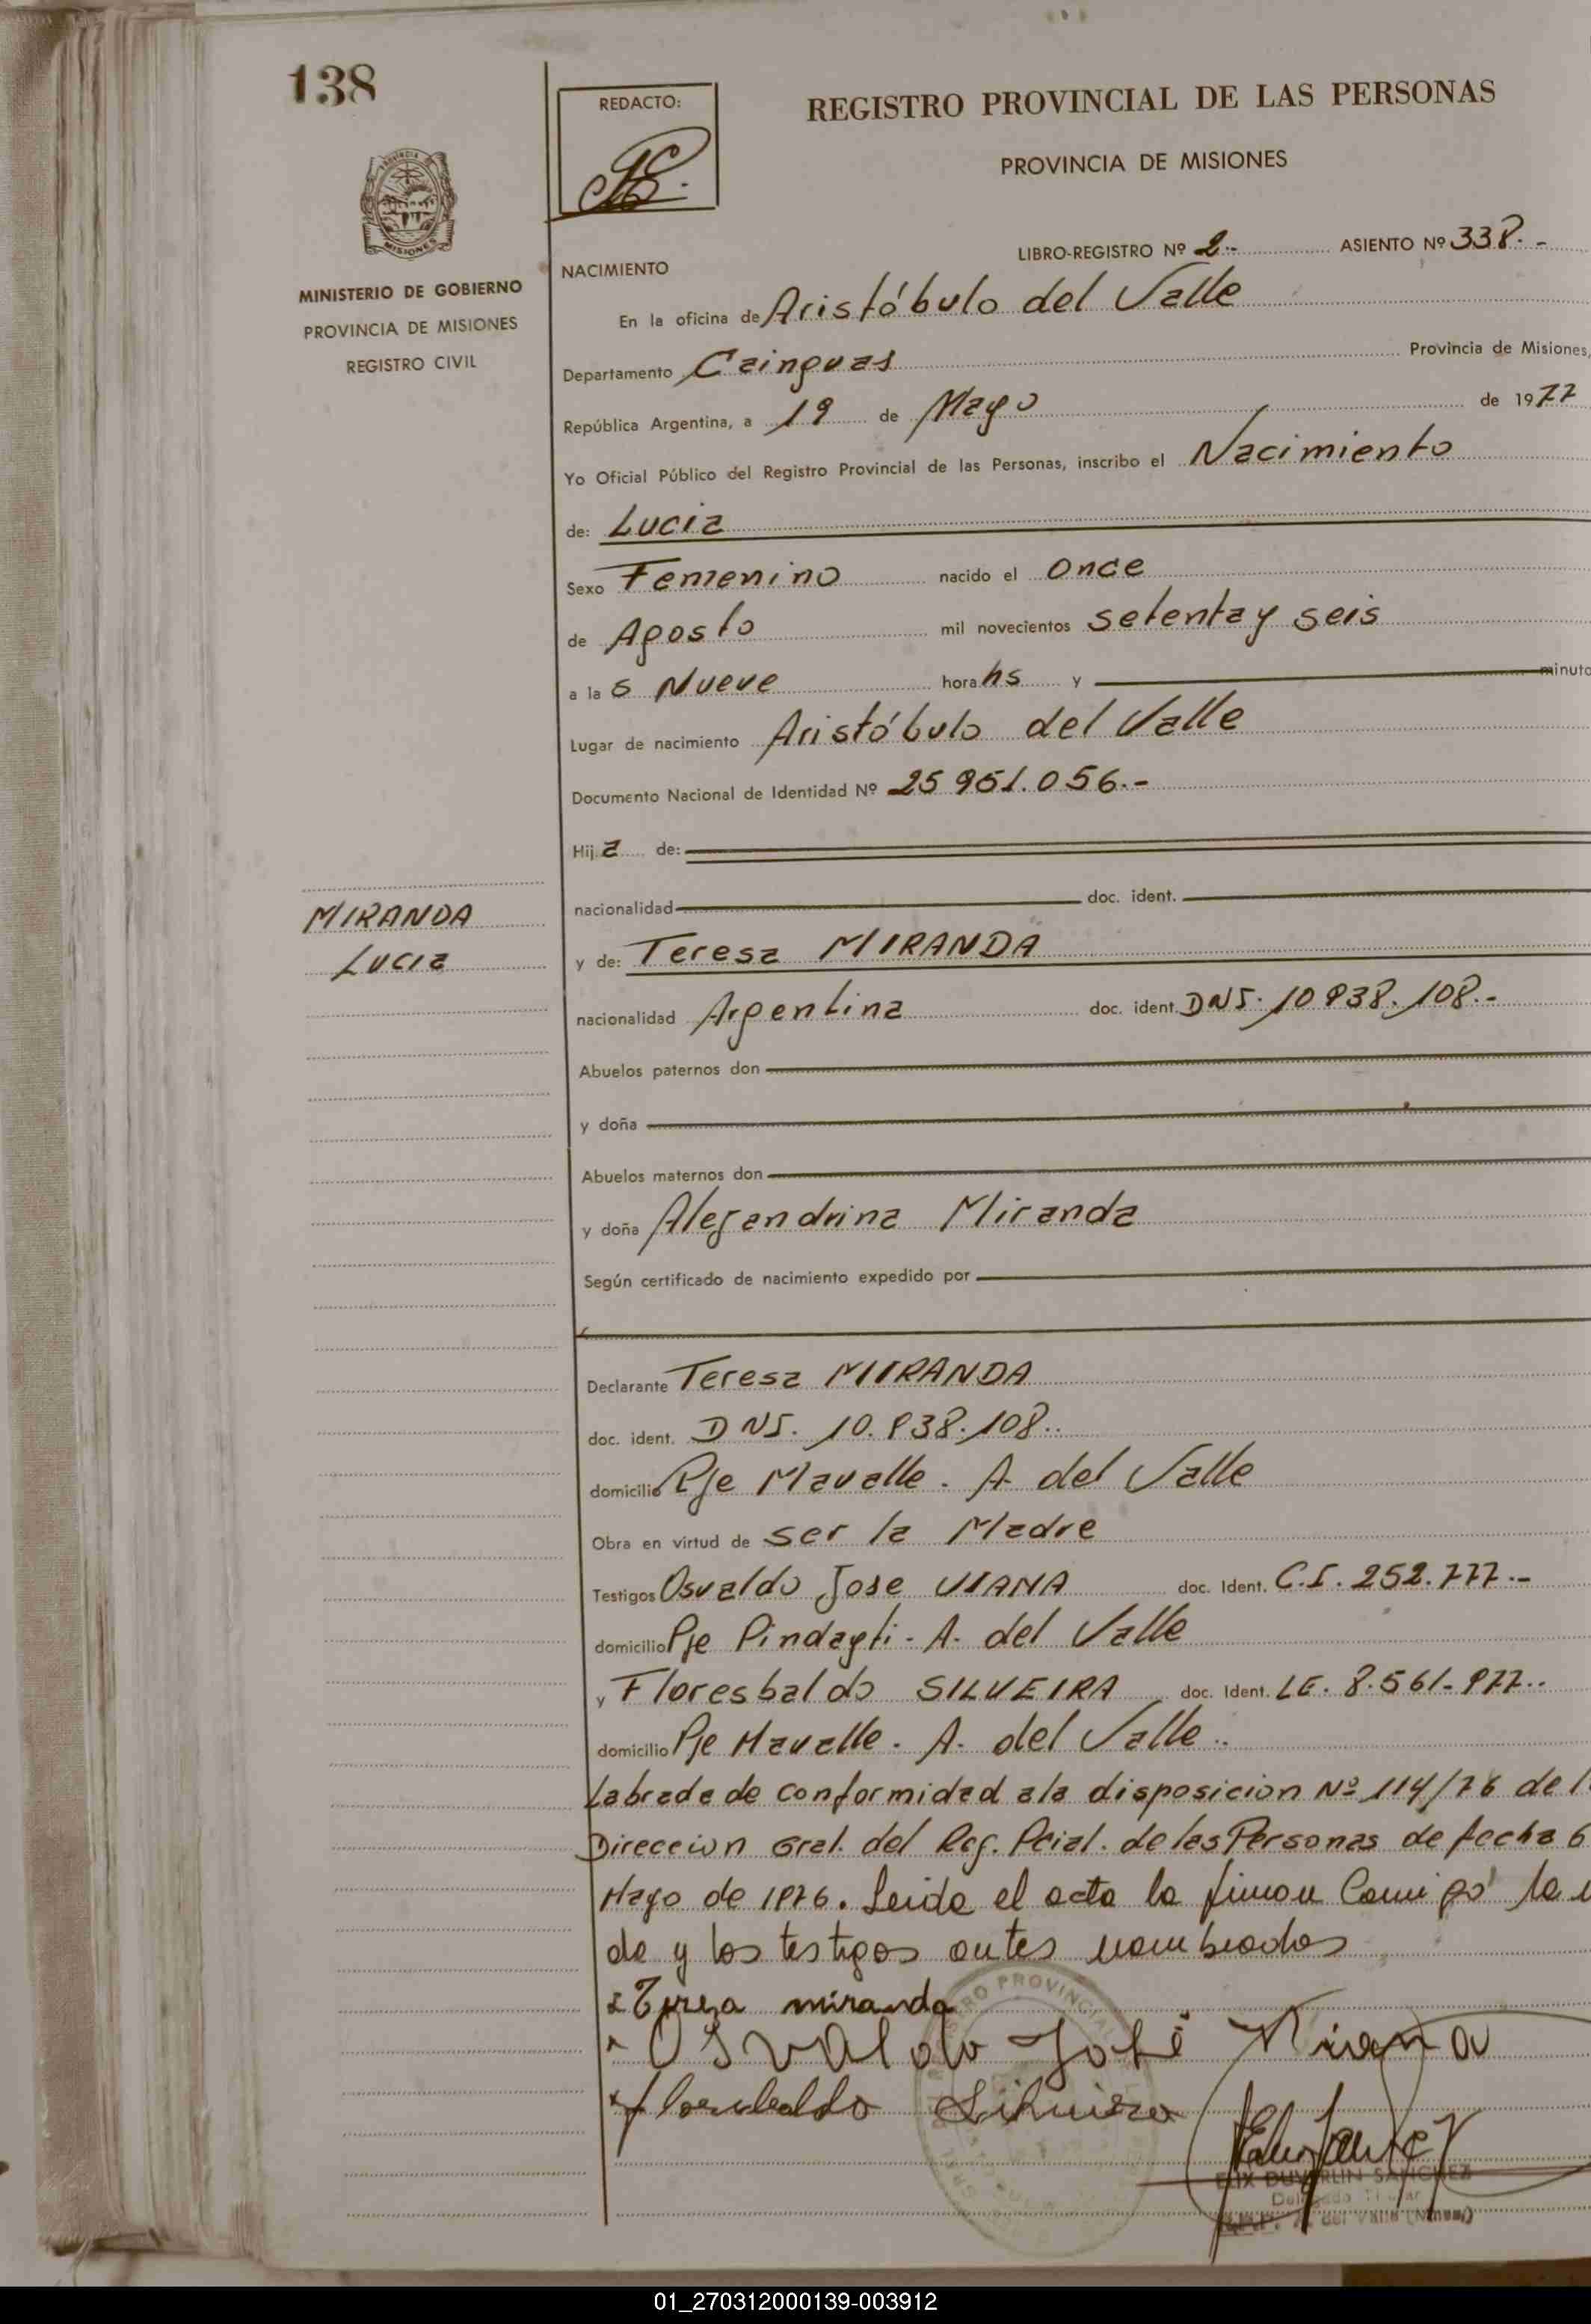 138
REDACTO:
REGISTRO PROVINCIAL DE LAS PERSONAS
PROVINCIA DE MISIONES
MISIONES
MINISTERIO DE GOBIERNO
PROVINCIA DE MISIONES
REGISTRO CIVIL
LIBRO-REGISTRO Nº 2.- ASIENTO Nº 338.-
NACIMIENTO
En la oficina de Aristóbulo del Valle
Departamento Cainguas Provincia de Misiones,
República Argentina, a 19 de Mayo de 1977
Yo Oficial Público del Registro Provincial de las Personas, inscribo el Nacimiento
de: Lucia
Sexo Femenino nacido el Once
de Agosto mil novecientos setenta y seis
a la s Nueve hora hs y minuto
Lugar de nacimiento Aristóbulo del Valle
Documento Nacional de Identidad Nº 25 951.056.-
Hij a de:
nacionalidad doc. ident.
MIRANDA
Lucia
y de: Teresa MIRANDA
nacionalidad Argentina doc. ident. DNI. 10 938.108.-
Abuelos paternos don
y doña
Abuelos maternos don
y doña Alejandrina Miranda
Según certificado de nacimiento expedido por
Declarante Teresa MIRANDA
doc. ident. DNI. 10.938.108..
domicilio Pje Mavalle. A. del Valle
Obra en virtud de ser la Madre
Testigos Osvaldo Jose VIANA doc. Ident. C.I. 252.777.-
domicilio Pje Pindayti - A. del Valle
y Floresbaldo SILVEIRA doc. Ident. LE. 8.561.977..
domicilio Pje Mavalle. A. del Valle..
Labrada de conformidad a la disposicion Nº 114/76 de l
Direccion Gral. del Reg. Pcial. de las Personas de fecha 6
Mayo de 1976. Leida el acta la firman Conmigo la
de y los testigos antes nombrados
Teresa miranda
Osvaldo José Viana
Floresbaldo Silveira
FELIX DUVERLIN SANCHEZ
Delegado Titular
A. del Valle (Mnes.)
01_270312000139-003912